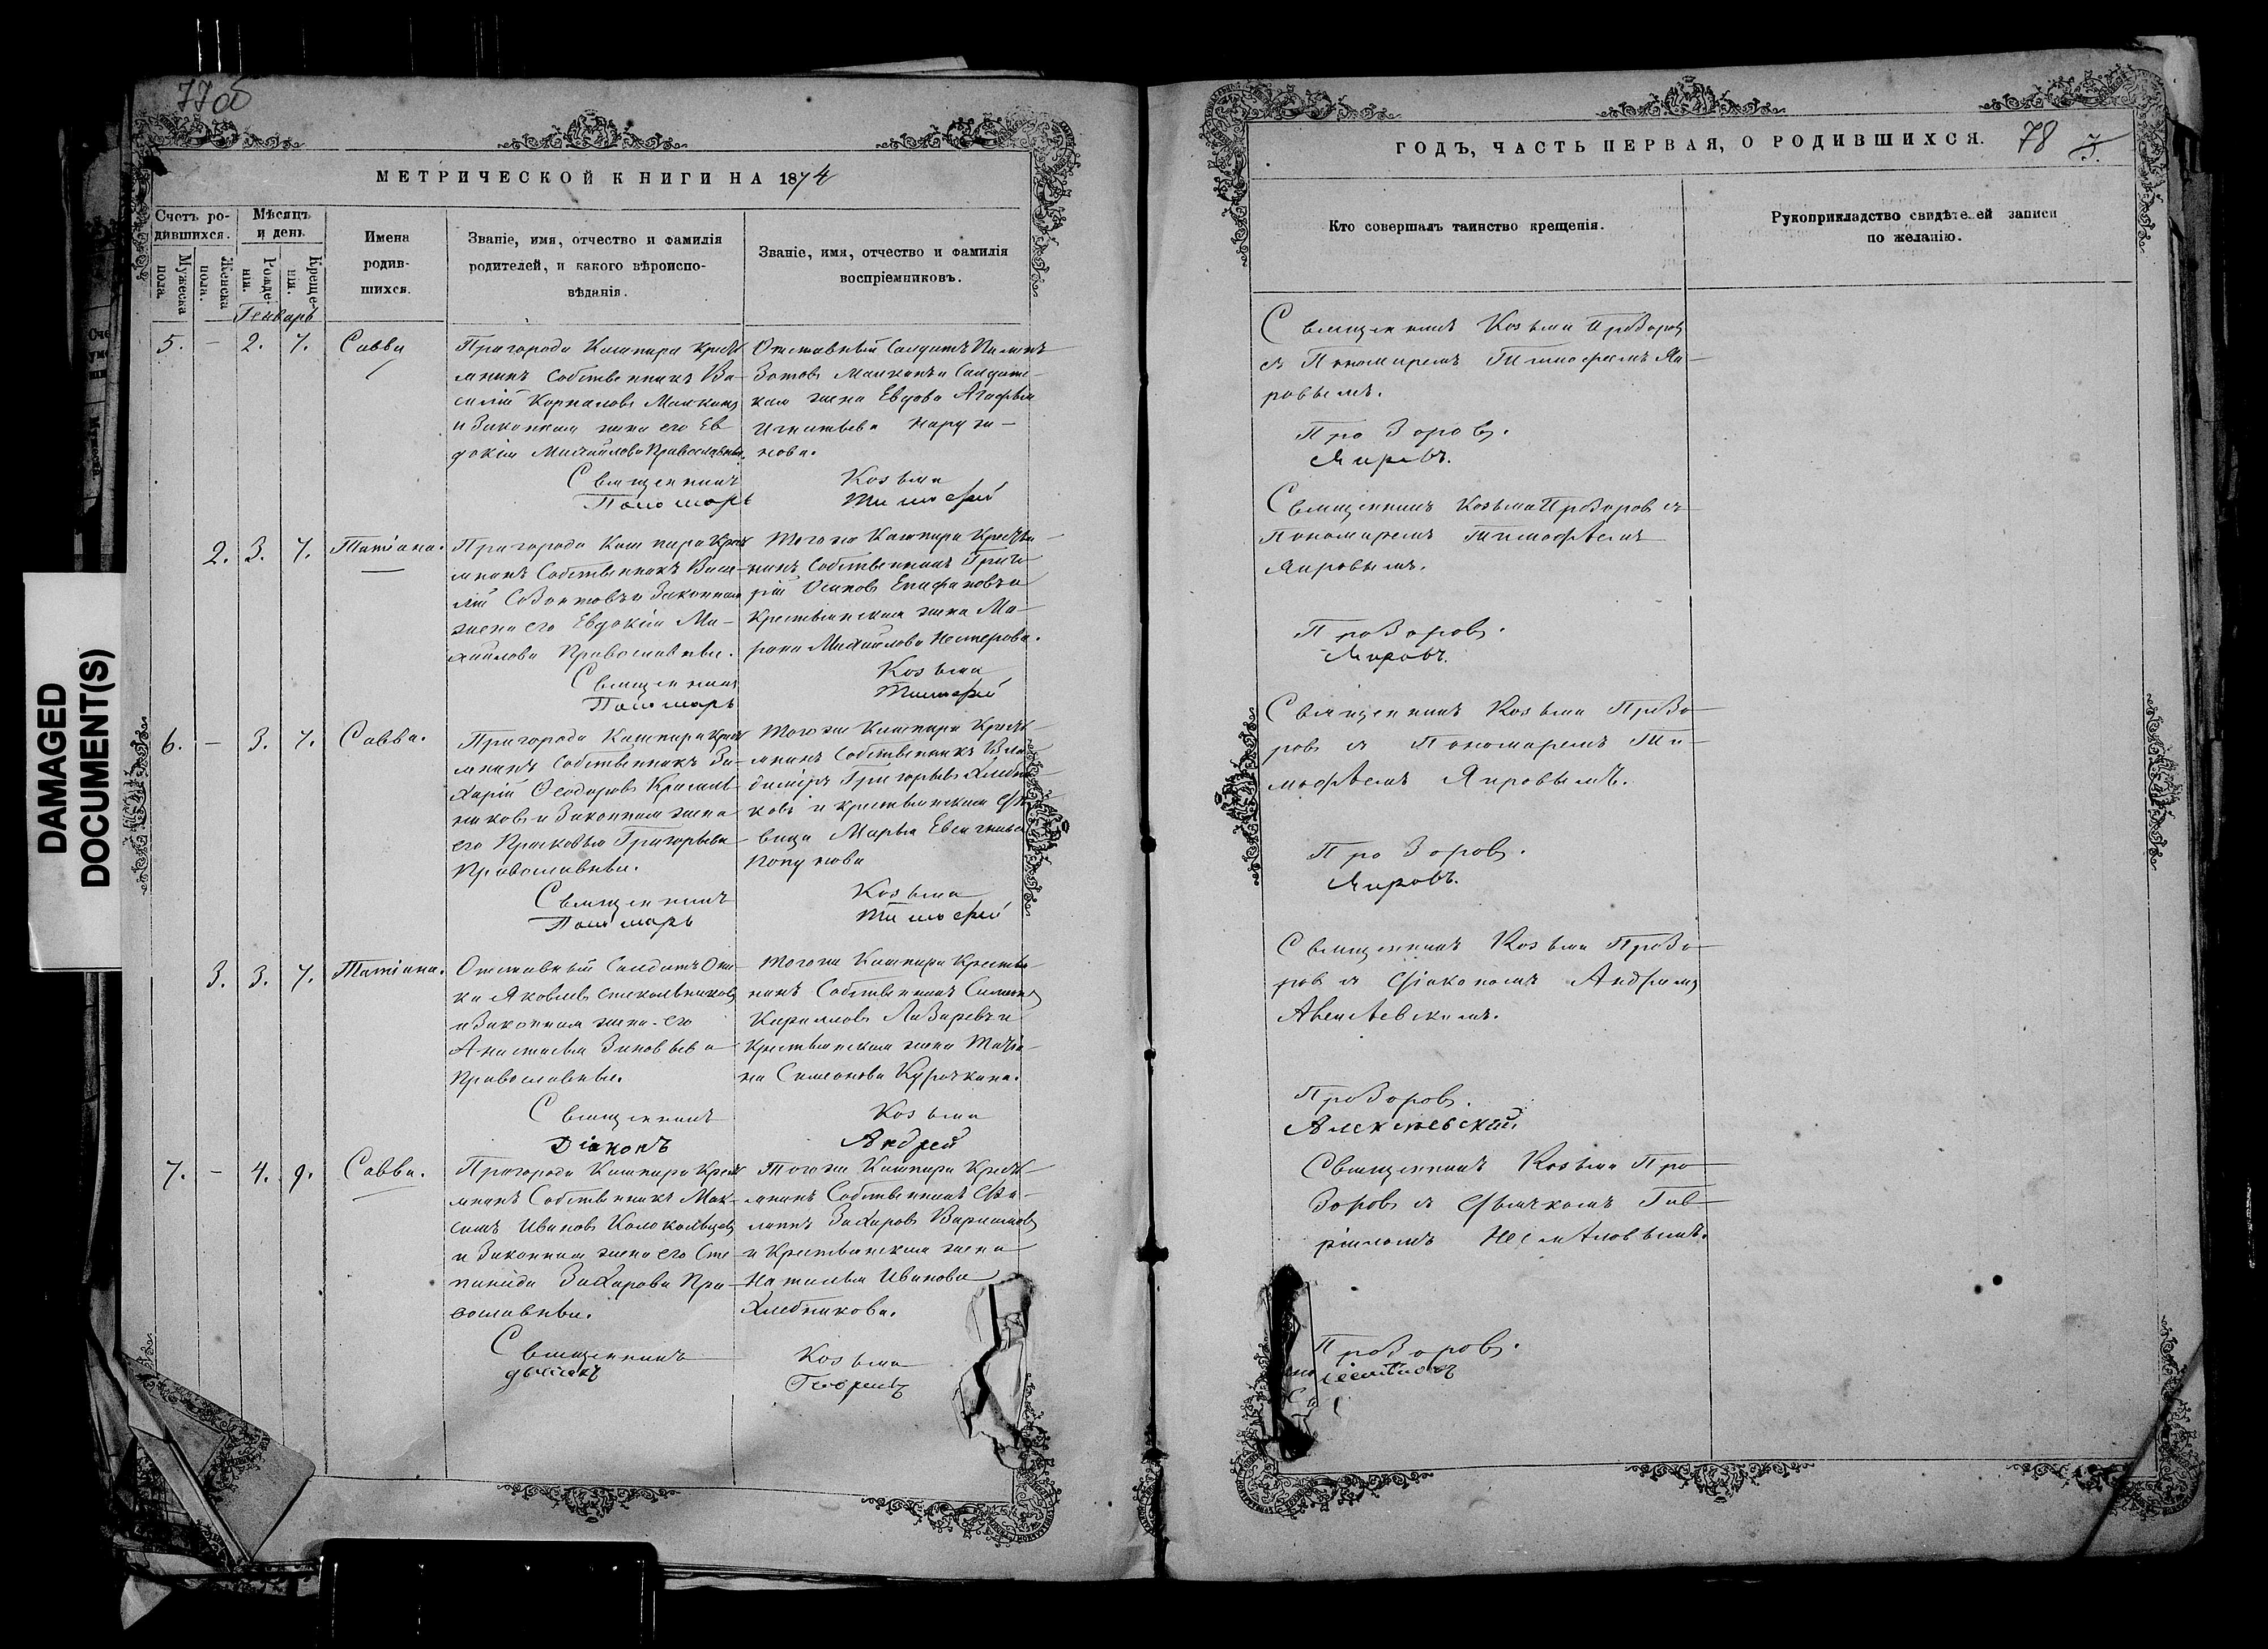 77об
МЕТРИЧЕСКОЙ КНИГИ НА 1874
Счетъ ро-
дившихся.
Мужеска
пола.
Женска
пола.
Мѣсяцъ
и день.
Рожде-
нія.
Креще-
нія.
Имена
родив-
шихся.
Званіе, имя, отчество и фамилія
родителей, и какого вѣроиспо-
вѣданія.
Званіе, имя, отчество и фамилія
воспріемниковъ.
Генварь
5. – 2. 7. Савва
Пригорода Кашпира Кресть
янинъ Собственникъ Ва-
силій Корниловъ
и Законная жена его Ев
докія Михайлова Православные.
Отставный Солдатъ
Зотовъ и Солдат-
кая жена Агафья
Игнатьева
нова.
Священникъ Козьма
Пономарь Тимофей
2. 3. 7. Татіана.
Пригорода Кашпира Крест
янинъ Собственникъ Васи-
лій и Законная
жена его Евдокія Ми-
хайлова Православные.
Того же Кашпира Крестья-
нинъ Собственникъ Григо
рій Осиповъ Епифановъ и
Крестьянская жена Ма-
рина Михайлова Нестерова.
Священникъ Козьма
Пономарь Тимофей
6. – 3. 7. Савва.
Пригорода Кашпира Крест
янинъ Собственникъ За-
харій Ѳеодоровъ Красиль
никовъ и Законная жена
его Прасковья Григорьева
Православные.
Того же Кашпира Кресть-
янинъ Собственникъ Вла-
диміръ Григорьевъ Хлебни-
ковъ и крестьянская дѣ-
вица Марья Евсигнѣева
Священникъ Козьма
Пономарь Тимофей
3. 3. 7. Татіана.
Отставный Солдатъ Ѳо-
ка Яковлевъ Стекольниковъ
и Законная жена его
Анастасья Зиновьева
Православные.
Того же Кашпира Крестья-
нинъ Собственникъ Симеонъ
Кириловъ Лазаревъ и
Крестьянская жена Татья-
на Симеонова Курочкина.
Священникъ Козьма
Діаконъ Андрей
7. – 4. 9. Савва.
Пригорода Кашпира Крест
янинъ Собственникъ Мак-
симъ Ивановъ Колокольцевъ
и Законная жена его Сте
панида Захарова Пра-
вославные.
Того же Кашпира Кресть
янинъ Собственникъ Де-
ментъ Захаровъ Варламовъ
и Крестьянская жена
Наталья Иванова
Хлебникова.
Священникъ Козьма
Дьячокъ Гавріилъ
ГОДЪ, ЧАСТЬ ПЕРВАЯ, О РОДИВШИХСЯ. 78
Кто совершалъ таинство крещенія.
Рукоприкладство свидѣтелей записи
по желанію.
Священникъ Козьма Прозоровъ
съ Пономаремъ Тимофеемъ Яи-
ровымъ.
Прозоровъ.
Яировъ.
Священникъ Козьма Прозоровъ съ
Пономаремъ Тимофѣемъ
Яировымъ.
Прозоровъ.
Яировъ.
Священникъ Козьма Прозо-
ровъ съ Пономаремъ Ти-
мофѣемъ Яировымъ.
Прозоровъ.
Яировъ.
Священникъ Козьма Прозо-
ровъ съ Діакономъ Андреемъ
Алексѣевскимъ.
Прозоровъ.
Алексѣевскій
Священникъ Козьма Про-
зоровъ съ Дьячкомъ Гав-
ріиломъ Несмѣловымъ.
Прозоровъ.
DAMAGED
DOCUMENT(S)